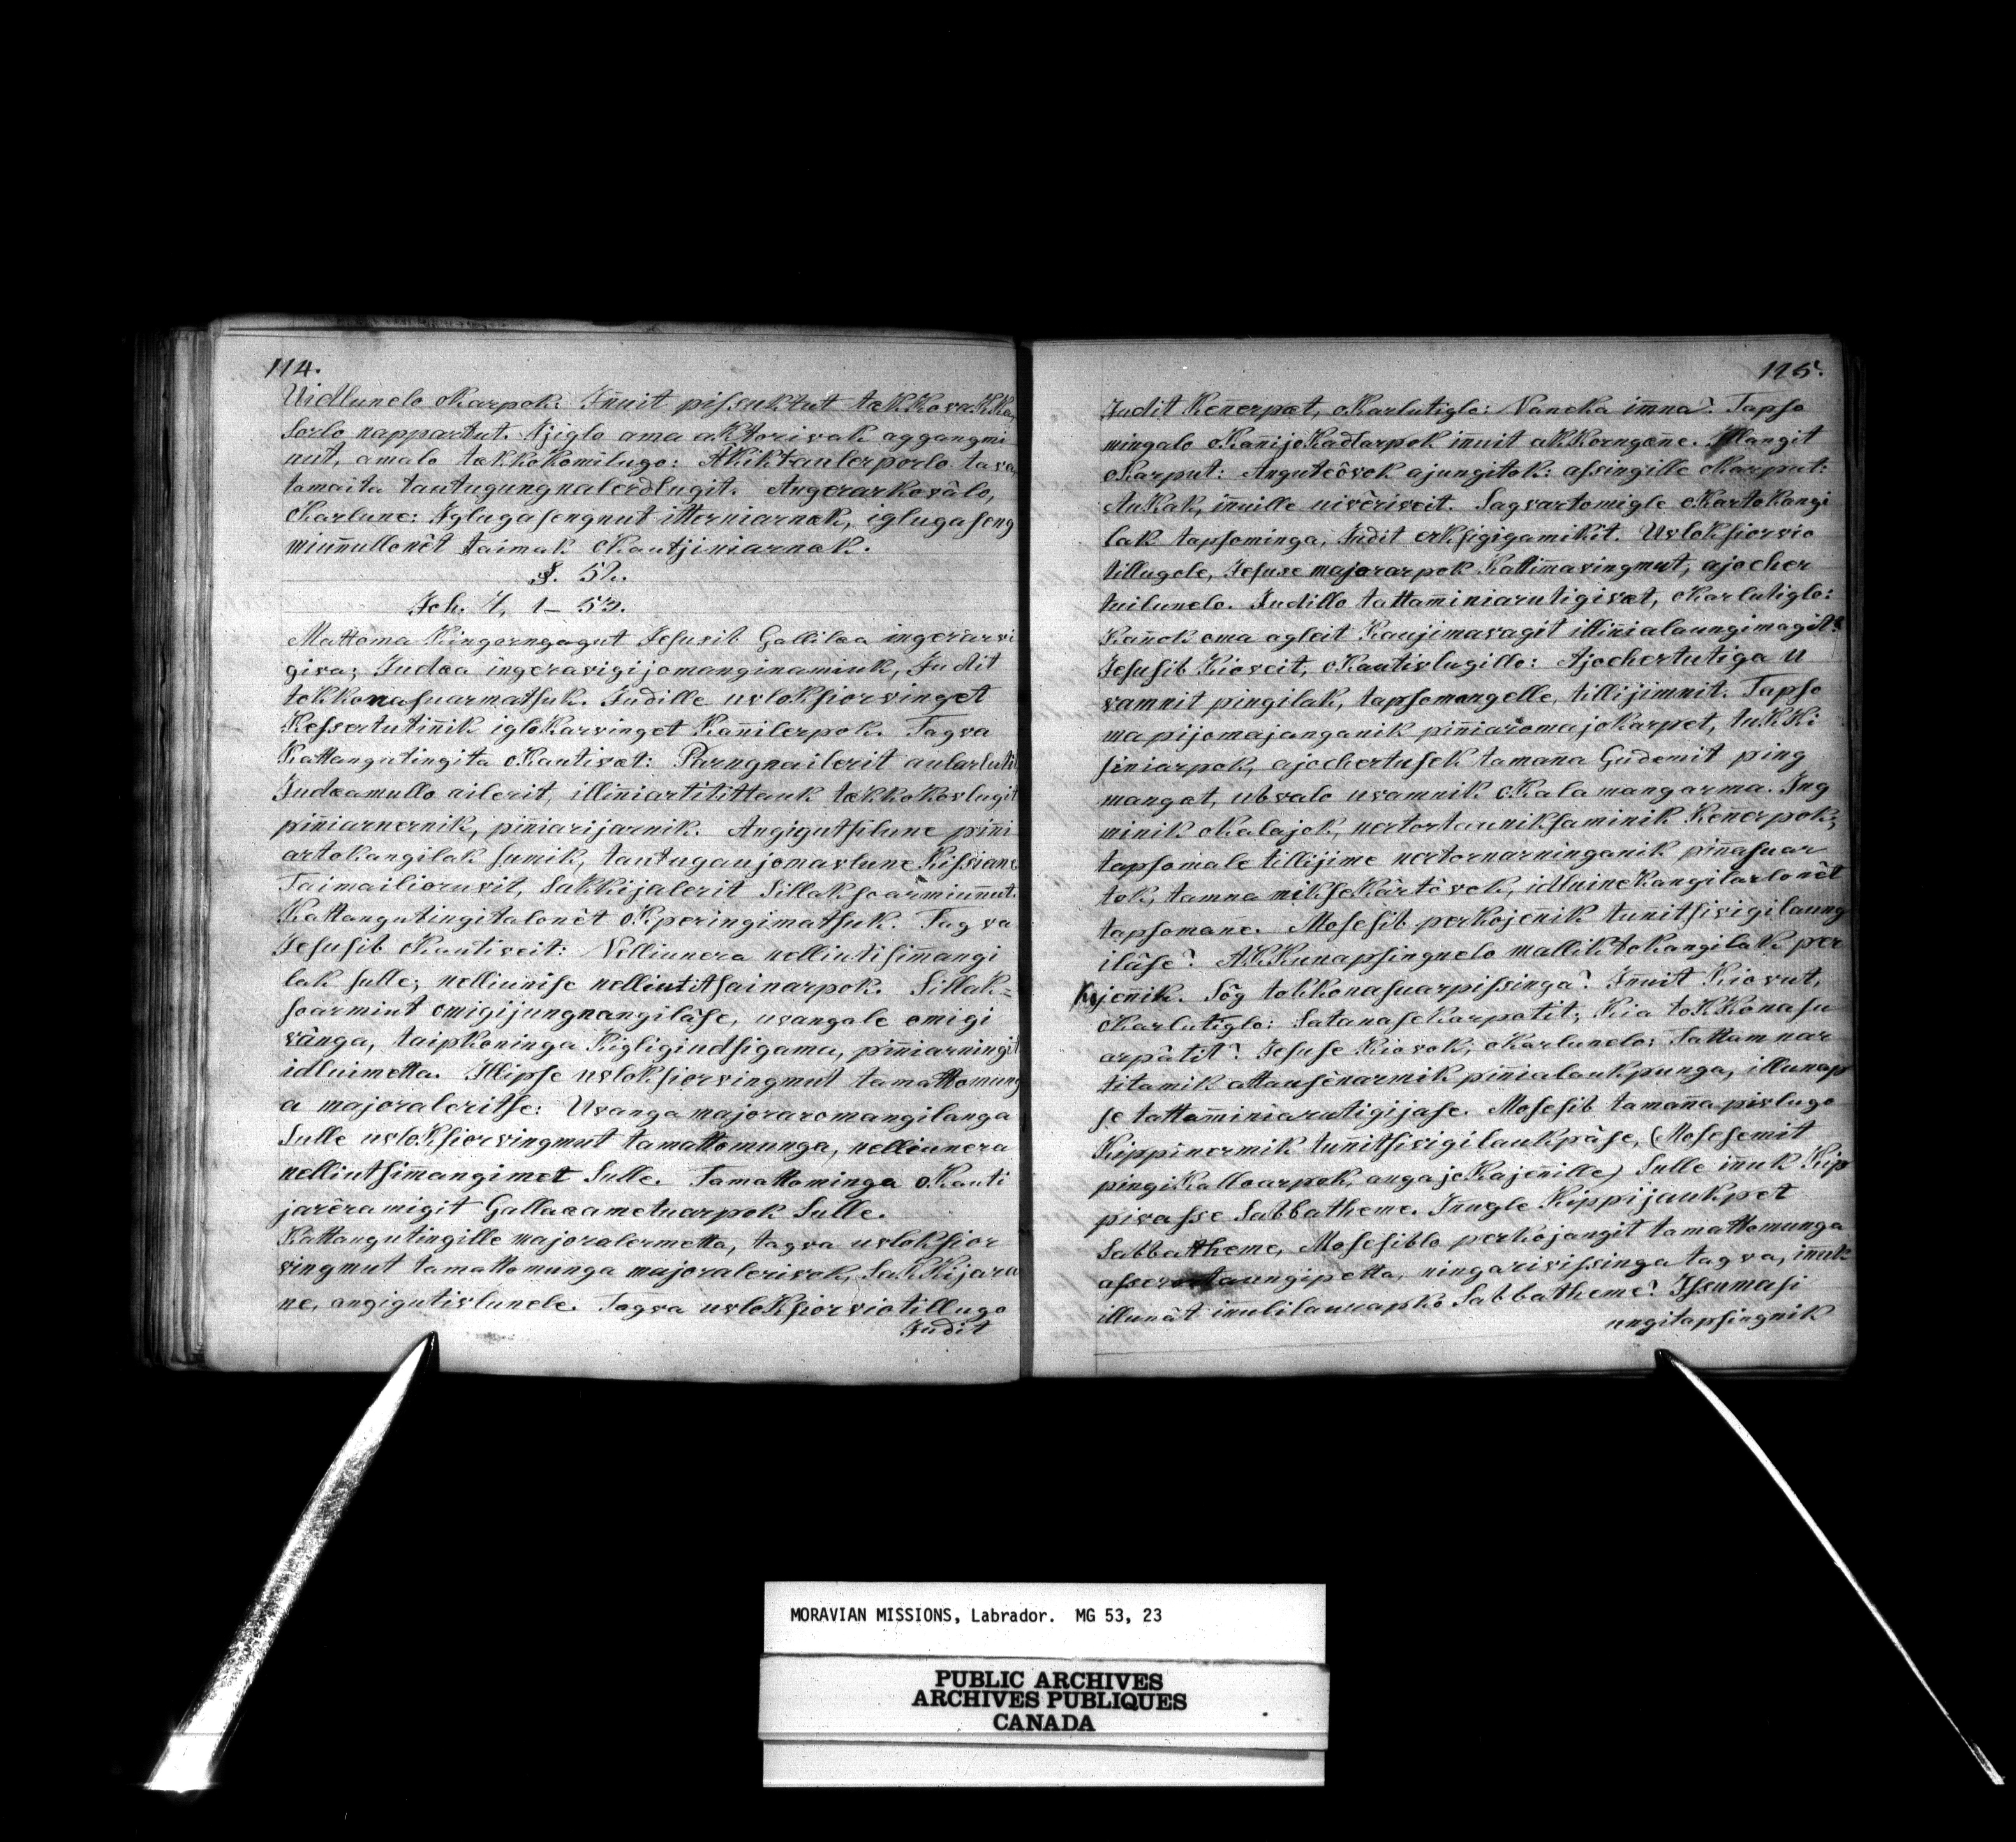 114.
Uidlunelo oKarpok: Innuit pissuktut tækkovakka,
sorlo nappartut. Ajiglo ama aktorivak aggangmi
nut, amalo tækkokomilugo: Akiktaulerporlo tava,
tamaita tautugungnalerdlugit. Angerarkovâlo,
oKarlune: Iglugasengnut itterniarnak, iglugaseng
miunnullonêt taimak oKautjiniarnak.
§. 52.
Joh. 7, 1 – 53.
Mattoma Kingorngagut Jesusib Galliläa ingerarvi
giva; Judæa ingeravigijomanginamiuk, Judit
tokkonasuarmatsuk. Judille uvloksiorvinget
Kessertutinnik iglokarvinget Kannilerpok. Tagva
Kattangutingita oKautivæt: Parngnailerit aularlutit
Judæamullo ailerit, illinniartitittauk tækkokovlugit
pinniarnernik, pinniarijarnik. Angigutsilune pinni
artokangilak sumik, tautugaujomavlune Kissiane.
Taimailioruvit, sakkijalerit Sillaksoarmiunnut.
Kattangutingitalonêt oKperingimatsuk. Tagva
Jesusib oKautiveit: Nelliunera nelliutisimangi
lak sulle; nelliunise nelliutitsainarpok. Sillak=
soarmiut omigijungnangiläse, uvangale omigi
vänga, taipkoninga Kigligiudsigama, pinniarningit
idluimetta. Illipse uvloksiorvingmut tamattomung
a majoraleritse: Uvanga majoraromangilanga
Sulle uvloksiorvingmut tamattomunga, nelliunera
nelliutsimangimet Sulle. Tamattominga oKauti
jarêramigit Gallaeametuarpok Sulle.
Kattangutingille majoralermetta, tagva uvloksior
vingmut tamattomunga majoralerivok, Sakkijara
ne, angigutivlunele. Tagva uvloksiorviotillugo
Judit
115.
Judit Kennerpæt, oKarlutiglo: Naneka imna? Tapso
mingalo oKannijoKadtarpok innuit akkorngane. Illangit
oKarput: Anguteôvok ajungitok: assingille oKarput:
AuKak, innuille uivêriveit. Sagvartomigle oKartokangi
lak tapsominga, Judit erksigigamikit. Uvloksiorvio
tillugole, Jesuse majorarpok Kattimavingmut, ajocher
tuilunelo. Judillo tattaminiarutigivæt, oKarlutiglo:
Kannok oma agleit Kaujimavagit illinnialaungimagit?
Jesusib Kioveit, oKautivlugillo: Ajochertutiga u
vamnit pingilak, tapsomangelle, tillijimnit. Tapso
ma pijomajanganik pinniaromajokarpet, tukki
siniarpok, ajochertusek tamanna Gudemit ping
mangæt, ubvalo uvamnik oKalamangarma. Ing
minik oKalajok, nertortauniksaminik Kennerpok;
tapsomale tillijime nertornarninganik pinnasuar
tok, tamna mikseKärtôvok, idluineKangilarlonêt
tapsomane. Mosesib perkojennik tunnitsivigilaung
iläse? Akkunapsingnelo malliktokangilak per
Kojennik. Sôg tokkonasuarpissinga? Innuit Kiovut,
oKarlutiglo: Satanasekarpotit; Kia tokkonasu
arpâtit? Jesuse Kiovok; oKarlunelo: Tattamnar
titamik attausênarmik pinnialaukpunga, illunap
se tattaminiarutigijase. Mosesib tamanna pivlugo
Kippinermik tunnitsivigilaukpäse, (Mosesemit
pingiKalloarpok, angajoKajennille) Sulle innuk Kip
pivasse Sabbatheme. Innugle Kippijaukpet
Sabbatheme, Mosesiblo perkojangit tamattomunga
asserortaungipetta, ningarivissinga tagva, innuk
illunât innulilauuapko Sabbatheme? Issumasi
ungitapsingnik
MORAVIAN MISSIONS, Labrador. MG 53, 23
PUBLIC ARCHIVES
ARCHIVES PUBLIQUES
CANADA